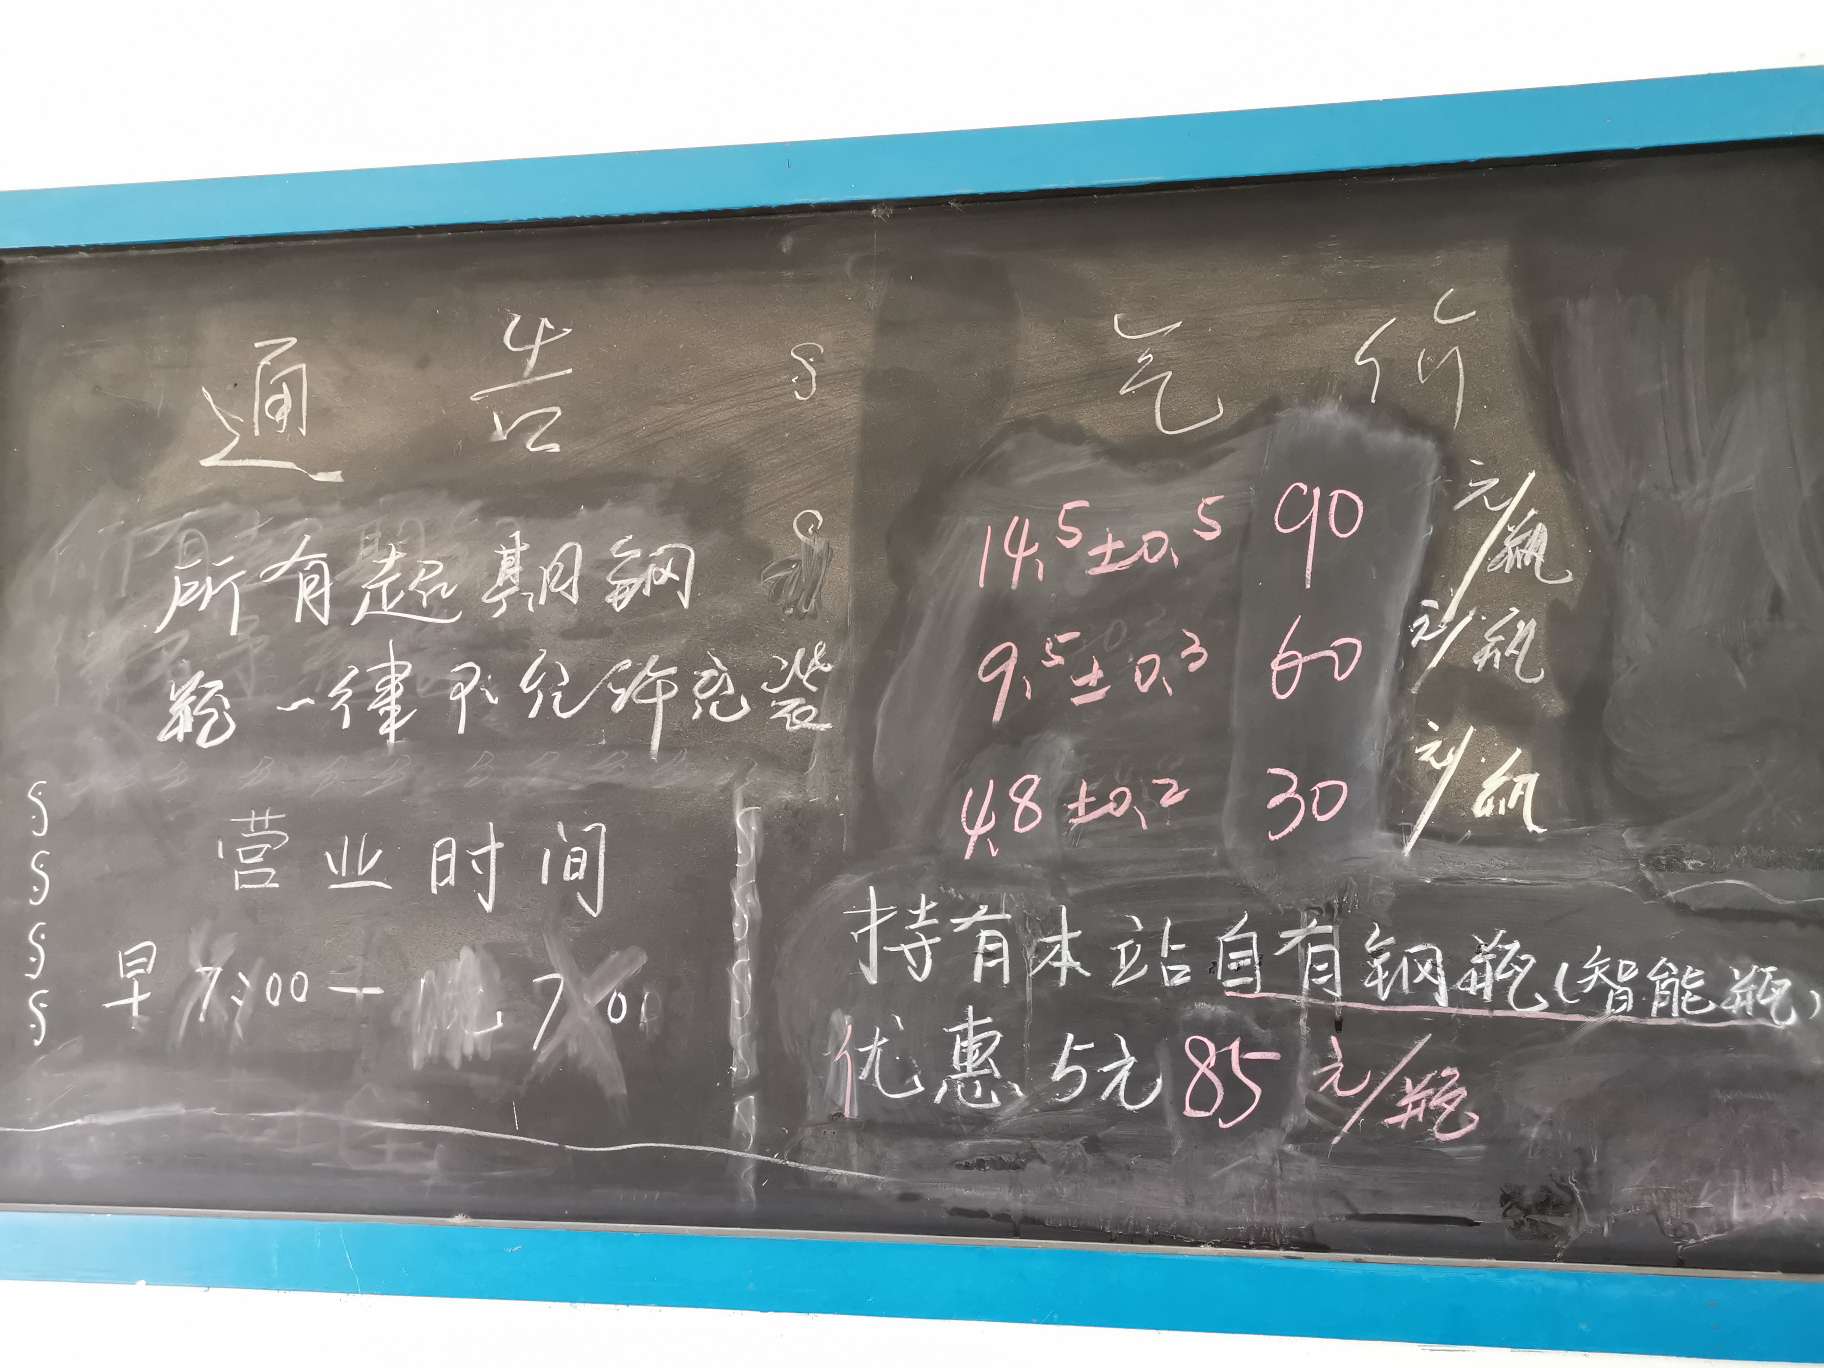 通告
所有超期钢
瓶一律不允许充装
营业时间
早7:00— 7:00
气价
14.5±0.5 90 元/瓶
9.5±0.3 60 元/瓶
4.8±0.2 30 元/瓶
持有本站自有钢瓶(智能瓶)
优惠5元85元/瓶